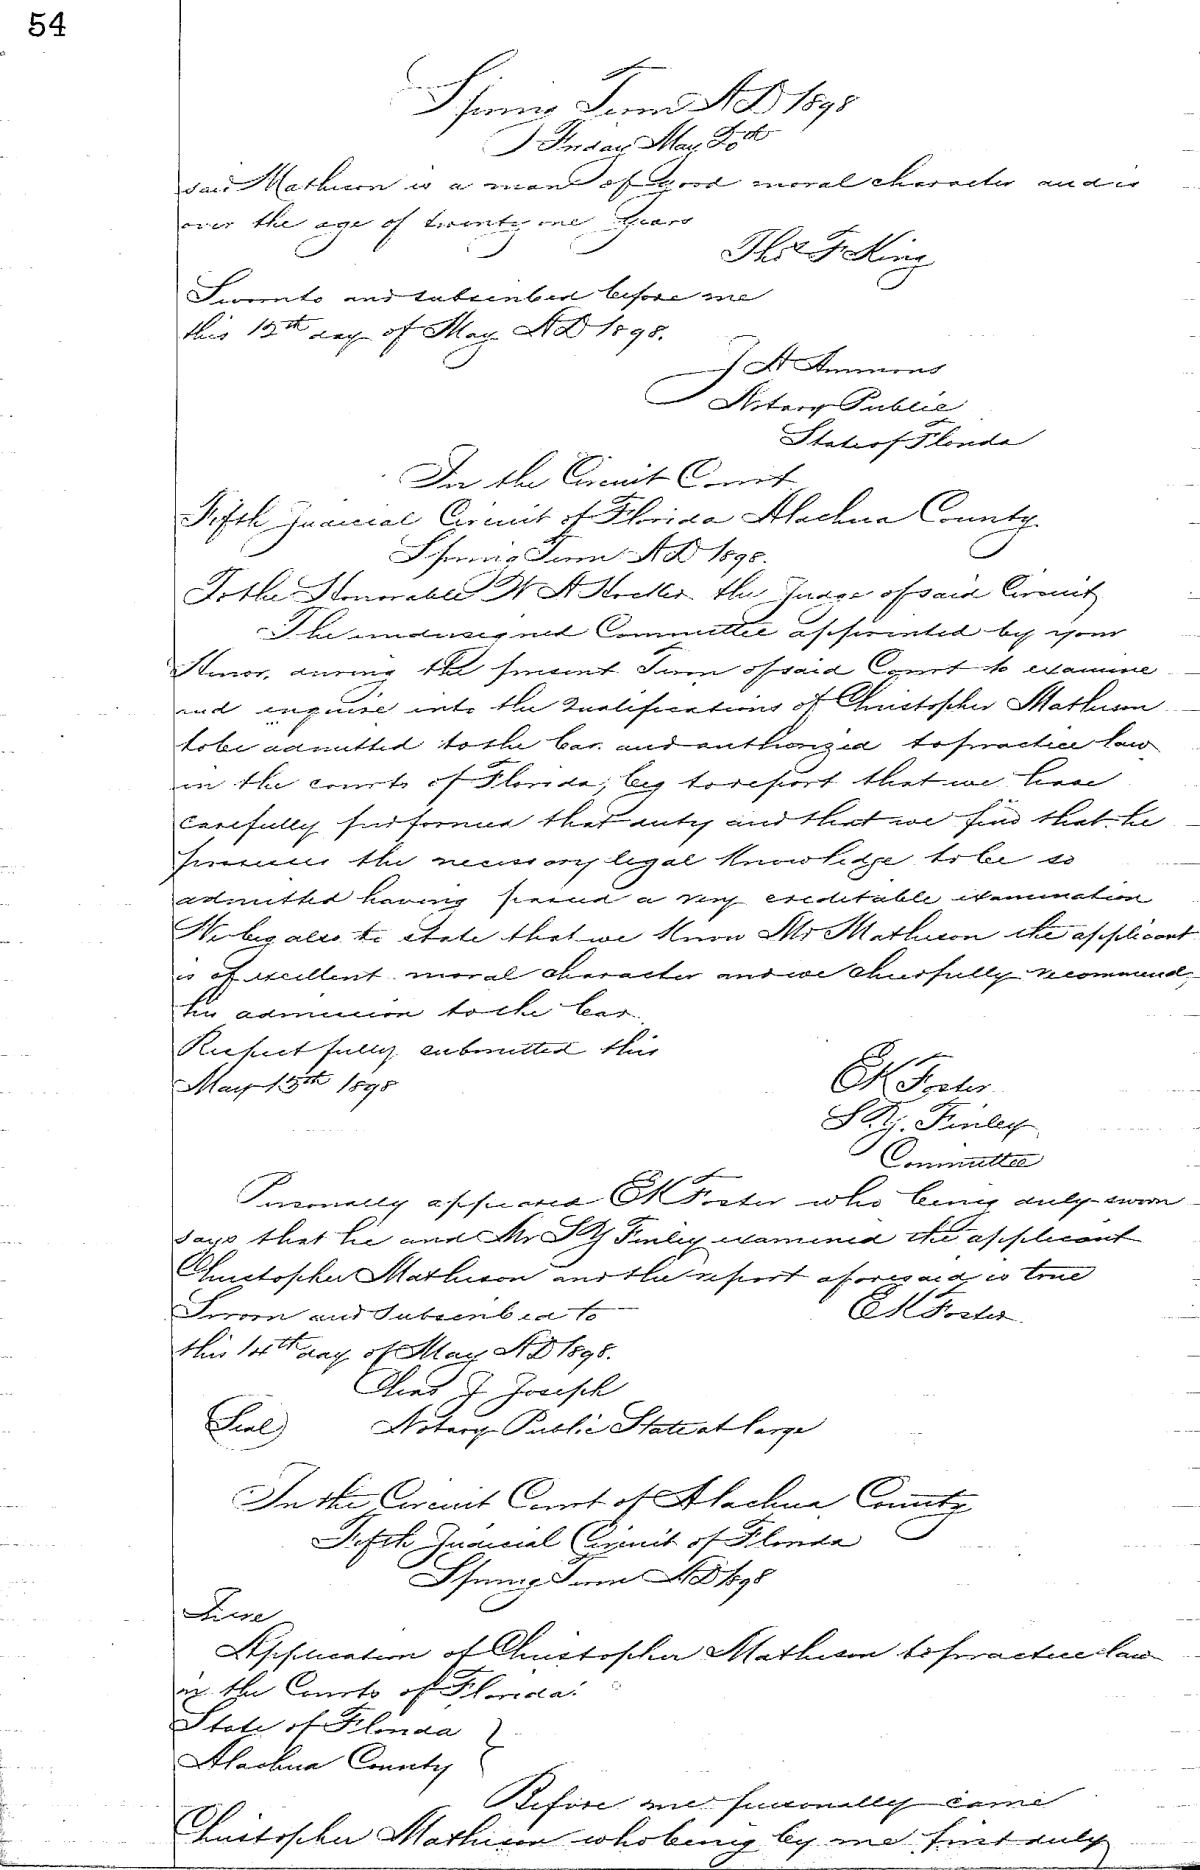 54
Spring Term A D 1898
Friday May 20th
said Matheson is a man of good moral character and is
over the age of twenty one years
Thos F King
Sworn to and subscribed before me
this 13th day of May A D 1898.
J A Ammons
Notary Public
State of Florida
In the Circuit Court
Fifth Judicial Circuit of Florida Alachua County.
Spring Term A D 1898.
To the Honorable W A Hocker the Judge of said Circuit
The undersigned Committee appointed by your
Honor, during the present Term of said Court to examine
and enquire into the qualifications of Christopher Matheson
to be admitted to the bar and authorized to practice law
in the courts of Florida, beg to report that we have
carefully performed that duty and that we find that he
possesses the necessary legal knowledge to be so
admitted having passed a very creditable examination
We beg also to state that we know Mr Matheson the applicant
is of excellent moral character and we cheerfully recommend
his admission to the bar.
Respectfully submitted this
May 13th 1898
E K Foster
S. Y. Finley
Committee
Personally appeared E K Foster who being duly sworn
says that he and Mr S Y Finley examined the applicant
Christopher Matheson and the report aforesaid is true
Sworn and Subscribed to
E K Foster.
this 14th day of May A D 1898.
Chas J Joseph
(Seal) Notary Public State at large
In the Circuit Court of Alachua County
Fifth Judicial Circuit of Florida
Spring Term A D 1898
In re
Application of Christopher Matheson to practice law
in the Courts of Florida.
State of Florida }
Alachua County
Before me personally came
Christopher Matheson who being by me first duly